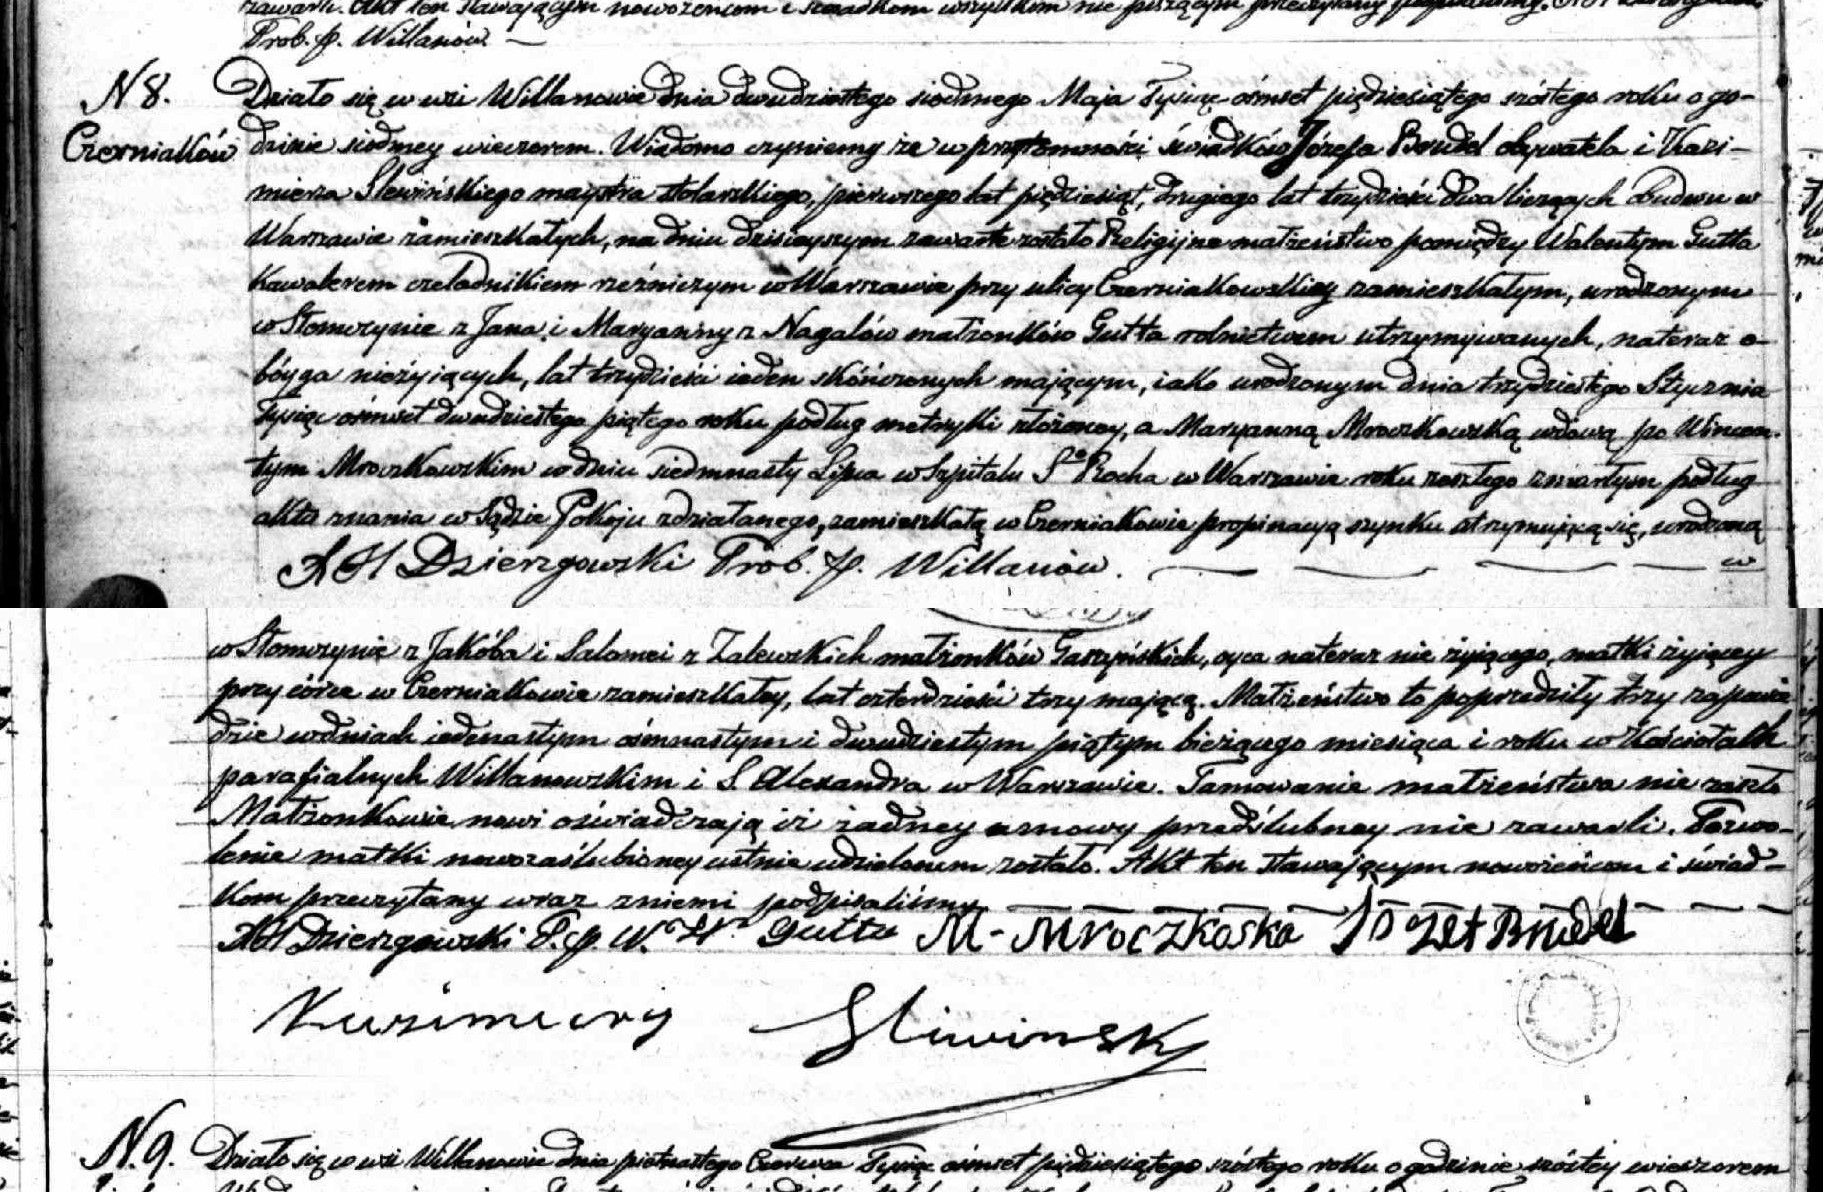 zawarli. Akt ten stawającym nowożeńcom i świadkom wszystkim nie piszącym przeczytany podpisaliśmy.
Prob. p. Willanów. —
N 8.
Czerniaków
Działo się w wsi Willanowie dnia dwudziestego siódmego Maja Tysiąc ośmset piędziesiątego szóstego roku o go-
dzinie siódmey wieczorem. Wiadomo czyniemy że w przytomności świadków Józefa Brudel obywatela i Kazi-
mierza Slewińskiego maystra stolarskiego, pierwszego lat pięćdziesiąt, drugiego lat trzydzieści dwa liczących obudwu w
Warszawie zamieszkałych, na dniu dzisieyszym zawarte zostało Religijne małżeństwo pomiędzy Walentym Gutta
Kawalerem czeladnikiem rzeźniczym w Warszawie przy ulicy Czerniakowskiey zamieszkałym, urodzonym
w Słomczynie z Jana i Maryanny z Nagalów małżonków Gutta rolnictwem utrzymywanych, nateraz o-
bóyga nieżyiących, lat trzydzieści ieden skończonych mającym, iako urodzonym dnia trzydziestego Stycznia
Tysiąc ośmset dwudziestego piątego roku podług metryki złożoney, a Maryanną Mroczkowską wdową po Wincen-
tym Mroczkowskim w dniu siedmnasty Lipca w Szpitalu Sgo Rocha w Warszawie roku zeszłego zmarłym podług
akta znania w Sądzie Pokoju zdziałanego, zamieszkałą w Czerniakowie propinacyą szynku utrzymującą się, urodzoną
X H Dzierzgowski Prob. p. Willanów. — — — — — w
w Słomczynie z Jakóba i Salomei z Zalewskich małżonków Gaszyńskich, oyca nateraz nie żyiącego, matki żyiącey
przy córce w Czerniakowie zamieszkałey, lat czterdzieści trzy mającą. Małżeństwo to poprzedziły trzy zapowie
dzie w dniach iedenastym ośmnastym i dwudziestym piątym bieżącego miesiąca i roku w Kościołach
parafialnych Willanowskim i S. Alexandra w Warszawie. Tamowanie małżeństwa nie zaszło
Małżonkowie nowi oświadczają iż żadney umowy przedślubney nie zawarli. Pozwo-
lenie matki nowozaślubioney ustnie udzielonem zostało. Akt ten stawającym nowożeńcom i świad-
kom przeczytany wraz z niemi podpisaliśmy — — —
X H Dzierzgowski P. p. W. W. Gutta M- Mroczkoska Jozef Brudel
Kazimierz Sliwinsk
N. 9. Działo się w wsi Willanowie dnia piętnastego Czerwca Tysiąc ośmset pięćdziesiątego szóstego roku o godzinie szóstey wieczorem